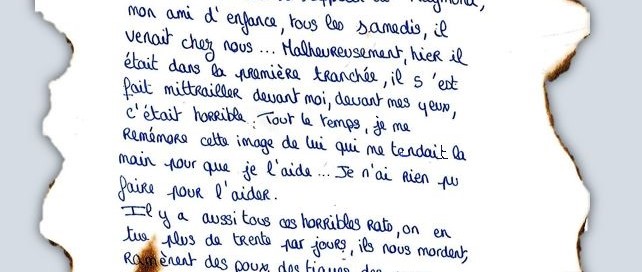 mon ami d'enfance, tous les samedis, il
venait chez nous ... Malheureusement, hier il
était dans la première tranchée, il s'est
fait mittrailler devant moi, devant mes yeux,
c'était horrible. Tout le temps, je me
remémore cette image de lui qui me tendait la
main pour que je l'aide ... Je n'ai rien pu
faire pour l'aider.
Il y a aussi tous ces horribles rats, on en
tue plus de trente par jours, ils nous mordent,
Ramènent des poux, des tiques, des